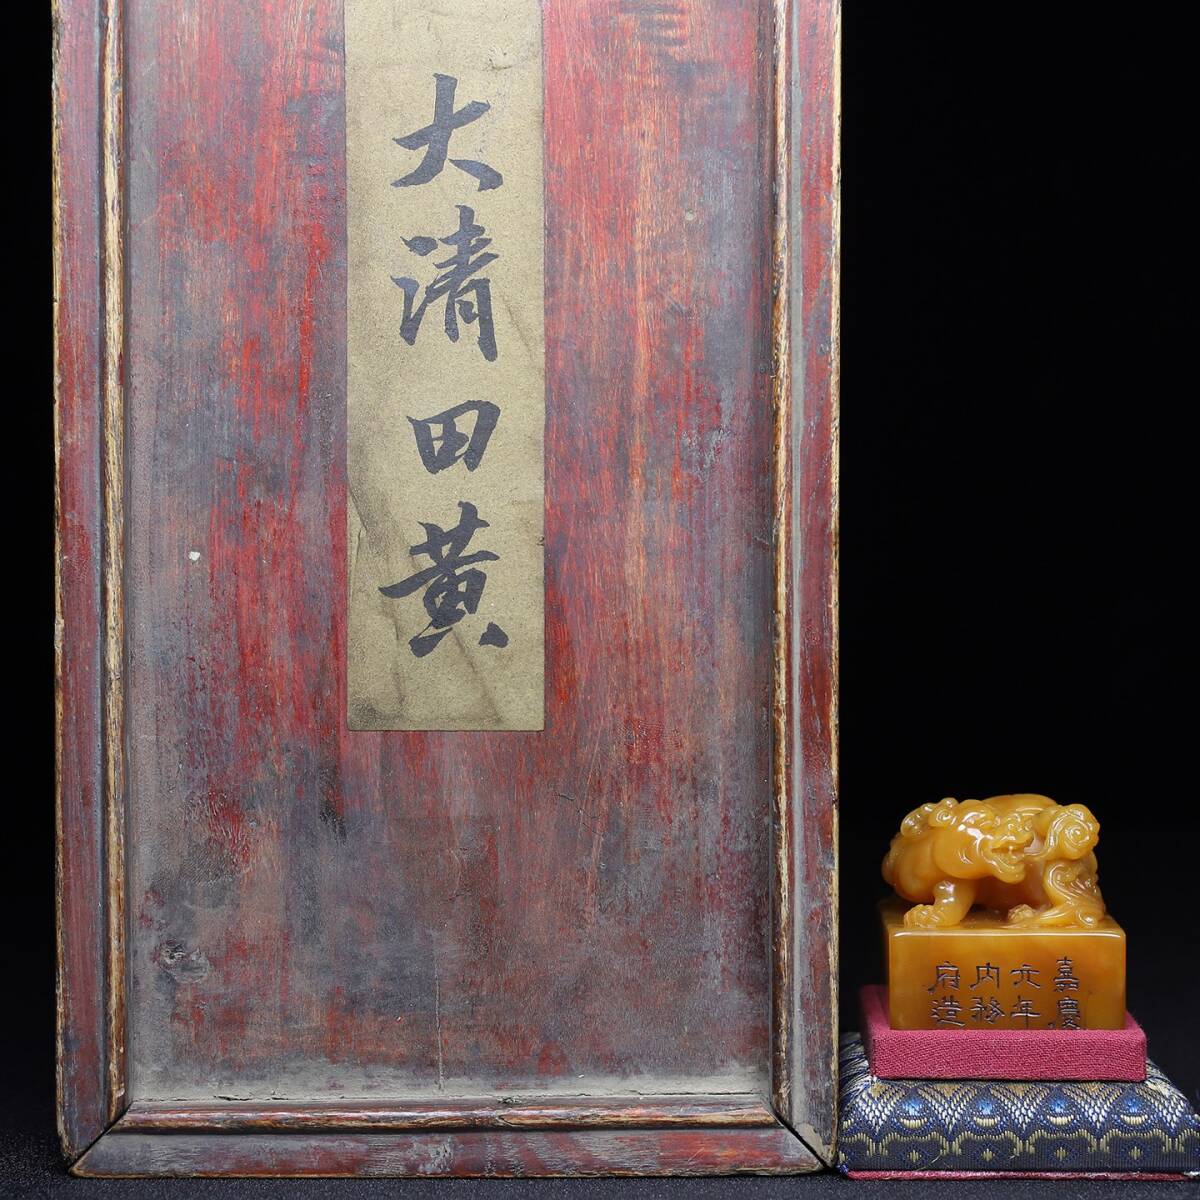 大清田黄
嘉慶
元年
内務
府造